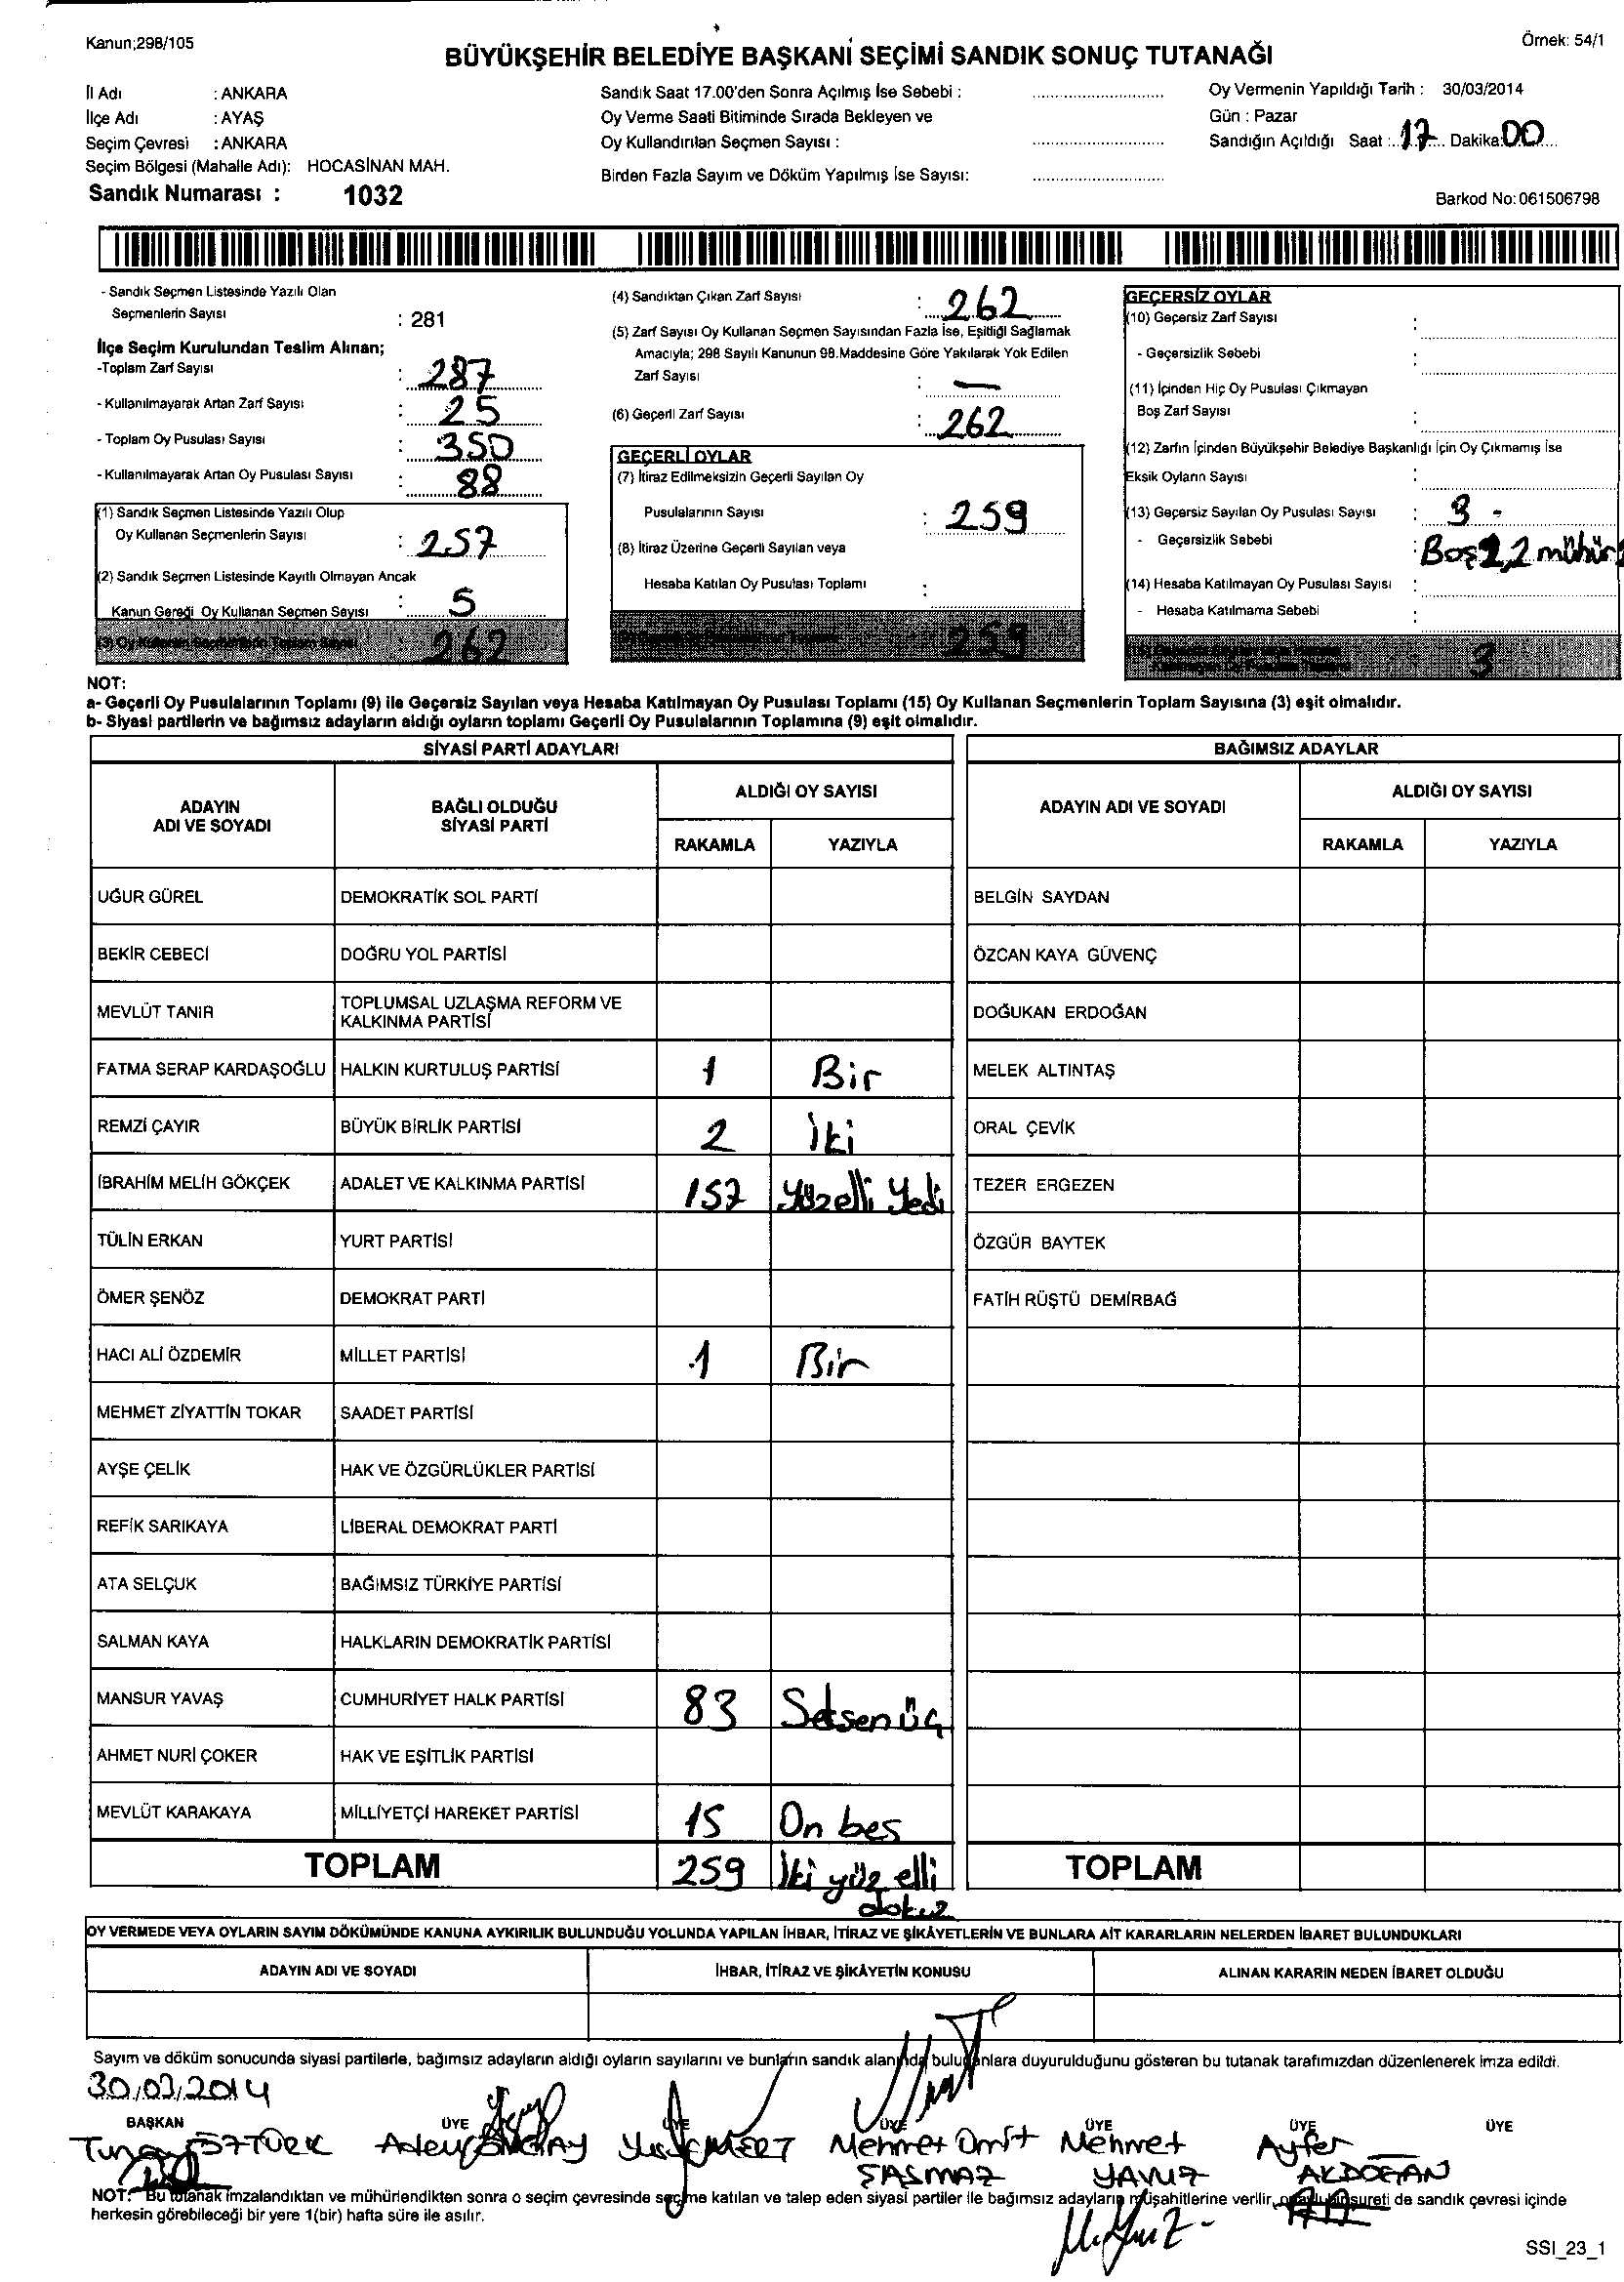 Kanun;298/105
Örnek: 54/1
BÜYÜKŞEHİR BELEDİYE BAŞKANI SEÇİMİ SANDIK SONUÇ TUTANAĞI
İl Adı : ANKARA
İlçe Adı : AYAŞ
Seçim Çevresi : ANKARA
Seçim Bölgesi (Mahalle Adı): HOCASİNAN MAH.
Sandık Numarası : 1032
Sandık Saat 17.00'den Sonra Açılmış İse Sebebi :
Oy Verme Saati Bitiminde Sırada Bekleyen ve
Oy Kullandırılan Seçmen Sayısı :
Birden Fazla Sayım ve Döküm Yapılmış İse Sayısı:
Oy Vermenin Yapıldığı Tarih : 30/03/2014
Gün : Pazar
Sandığın Açıldığı Saat : 17 Dakika: 00
Barkod No: 061506798
- Sandık Seçmen Listesinde Yazılı Olan
Seçmenlerin Sayısı : 281
İlçe Seçim Kurulundan Teslim Alınan;
-Toplam Zarf Sayısı : 287
- Kullanılmayarak Artan Zarf Sayısı : 25
- Toplam Oy Pusulası Sayısı : 350
- Kullanılmayarak Artan Oy Pusulası Sayısı : 88
(1) Sandık Seçmen Listesinde Yazılı Olup
Oy Kullanan Seçmenlerin Sayısı : 257
(2) Sandık Seçmen Listesinde Kayıtlı Olmayan Ancak
Kanun Gereği Oy Kullanan Seçmen Sayısı : 5
(3) Oy Kullanan Seçmenlerin Toplam Sayısı : 262
(4) Sandıktan Çıkan Zarf Sayısı : 262
(5) Zarf Sayısı Oy Kullanan Seçmen Sayısından Fazla İse, Eşitliği Sağlamak
Amacıyla; 298 Sayılı Kanunun 98.Maddesine Göre Yakılarak Yok Edilen
Zarf Sayısı : —
(6) Geçerli Zarf Sayısı : 262
GEÇERLİ OYLAR
(7) İtiraz Edilmeksizin Geçerli Sayılan Oy
Pusulalarının Sayısı : 259
(8) İtiraz Üzerine Geçerli Sayılan veya
Hesaba Katılan Oy Pusulası Toplamı :
259
GEÇERSİZ OYLAR
(10) Geçersiz Zarf Sayısı :
- Geçersizlik Sebebi :
(11) İçinden Hiç Oy Pusulası Çıkmayan
Boş Zarf Sayısı :
(12) Zarfın İçinden Büyükşehir Belediye Başkanlığı İçin Oy Çıkmamış İse
Eksik Oyların Sayısı :
(13) Geçersiz Sayılan Oy Pusulası Sayısı : 3 -
- Geçersizlik Sebebi : Boş 1, 2 mühür
(14) Hesaba Katılmayan Oy Pusulası Sayısı :
- Hesaba Katılmama Sebebi :
3
NOT:
a- Geçerli Oy Pusulalarının Toplamı (9) ile Geçersiz Sayılan veya Hesaba Katılmayan Oy Pusulası Toplamı (15) Oy Kullanan Seçmenlerin Toplam Sayısına (3) eşit olmalıdır.
b- Siyasi partilerin ve bağımsız adayların aldığı oyların toplamı Geçerli Oy Pusulalarının Toplamına (9) eşit olmalıdır.
SİYASİ PARTİ ADAYLARI
ADAYIN ADI VE SOYADI BAĞLI OLDUĞU SİYASİ PARTİ ALDIĞI OY SAYISI
RAKAMLA YAZIYLA
UĞUR GÜREL DEMOKRATİK SOL PARTİ
BEKİR CEBECİ DOĞRU YOL PARTİSİ
MEVLÜT TANIR TOPLUMSAL UZLAŞMA REFORM VE KALKINMA PARTİSİ
FATMA SERAP KARDAŞOĞLU HALKIN KURTULUŞ PARTİSİ 1 Bir
REMZİ ÇAYIR BÜYÜK BİRLİK PARTİSİ 2 İki
İBRAHİM MELİH GÖKÇEK ADALET VE KALKINMA PARTİSİ 157 Yüzelli Yedi
TÜLİN ERKAN YURT PARTİSİ
ÖMER ŞENÖZ DEMOKRAT PARTİ
HACI ALİ ÖZDEMİR MİLLET PARTİSİ 1 Bir
MEHMET ZİYATTİN TOKAR SAADET PARTİSİ
AYŞE ÇELİK HAK VE ÖZGÜRLÜKLER PARTİSİ
REFİK SARIKAYA LİBERAL DEMOKRAT PARTİ
ATA SELÇUK BAĞIMSIZ TÜRKİYE PARTİSİ
SALMAN KAYA HALKLARIN DEMOKRATİK PARTİSİ
MANSUR YAVAŞ CUMHURİYET HALK PARTİSİ 83 Seksen üç
AHMET NURİ ÇOKER HAK VE EŞİTLİK PARTİSİ
MEVLÜT KARAKAYA MİLLİYETÇİ HAREKET PARTİSİ 15 On beş
TOPLAM 259 İki yüz elli dokuz
BAĞIMSIZ ADAYLAR
ADAYIN ADI VE SOYADI ALDIĞI OY SAYISI
RAKAMLA YAZIYLA
BELGİN SAYDAN
ÖZCAN KAYA GÜVENÇ
DOĞUKAN ERDOĞAN
MELEK ALTINTAŞ
ORAL ÇEVİK
TEZER ERGEZEN
ÖZGÜR BAYTEK
FATİH RÜŞTÜ DEMİRBAĞ
TOPLAM
OY VERMEDE VEYA OYLARIN SAYIM DÖKÜMÜNDE KANUNA AYKIRILIK BULUNDUĞU YOLUNDA YAPILAN İHBAR, İTİRAZ VE ŞİKÂYETLERİN VE BUNLARA AİT KARARLARIN NELERDEN İBARET BULUNDUKLARI
ADAYIN ADI VE SOYADI İHBAR, İTİRAZ VE ŞİKÂYETİN KONUSU ALINAN KARARIN NEDEN İBARET OLDUĞU
Sayım ve döküm sonucunda siyasi partilerle, bağımsız adayların aldığı oyların sayılarını ve bunların sandık alanında bulunanlara duyurulduğunu gösteren bu tutanak tarafımızdan düzenlenerek imza edildi.
30/03/2014
BAŞKAN ÜYE ÜYE ÜYE ÜYE ÜYE ÜYE
MERT Mehmet Ümit ŞAŞMAZ Mehmet YAVUZ Ayfer AKDOĞAN
NOT: Bu tutanak imzalandıktan ve mühürlendikten sonra o seçim çevresinde seçime katılan ve talep eden siyasi partiler ile bağımsız adayların müşahitlerine verilir, onaylı bir sureti de sandık çevresi içinde
herkesin görebileceği bir yere 1(bir) hafta süre ile asılır.
SSI_23_1